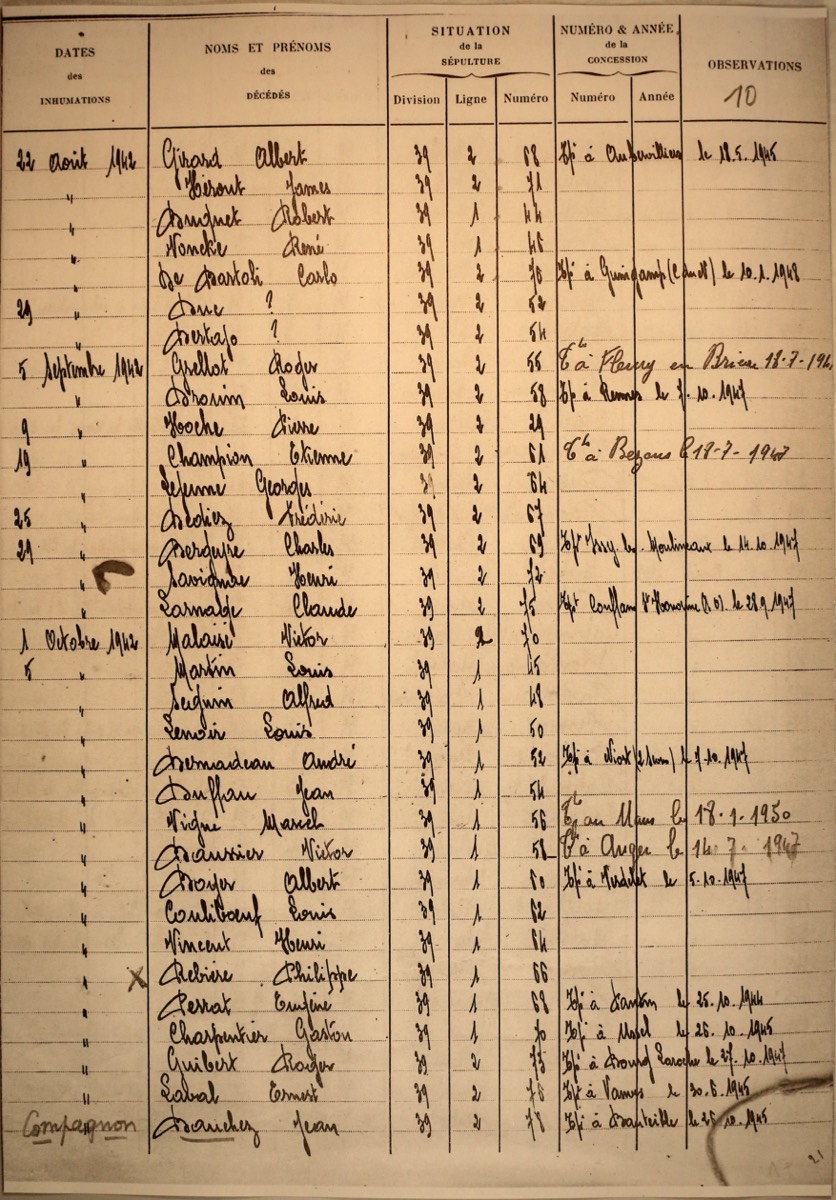 DATES des INHUMATIONS
NOMS ET PRÉNOMS des DÉCÉDÉS
SITUATION de la SÉPULTURE
Division Ligne Numéro
NUMÉRO & ANNÉE de la CONCESSION
Numéro Année
OBSERVATIONS
10
22 Août 1942 Girard Albert 39 2 68 Tpt à Aubervilliers le 18.5.1945
" Hérout James 39 2 71
" Robert 39 1 44
" Voncke René 39 1 46
" De Bartoli Carlo 39 2 le 10.1.1948
29 " Duc ? 39 2 52
" ? 39 2 54
5 Septembre 1942 Grellot Roger 39 2 55 à Fleury en Brière 18-7-194
" Drouin Louis 39 2 58 Tpt à Rennes le 7.10.1947
9 " Hoche Pierre 39 2 29
19 " Champion Etienne 39 2 61 à Bezons le 18-7-1947
" Lejeune Georges 39 2 64
25 " Frédéric 39 2 67
29 " Charles 39 2 69 Tpt Issy les Moulineaux le 14.10.1947
" Henri 39 2 72
" Larnalde Claude 39 2 75 Tpt Conflans Ste Honorine (S.O) le 28.9.1947
1 Octobre 1942 Malaise Victor 39 2 70
5 " Martin Louis 39 1 45
" Seguin Alfred 39 1 48
" Lenoir Louis 39 1 50
" André 39 1 52 Tpt à Niort (2 Sèvres) le 7.10.1947
" Duffau Jean 39 1 54
" Vigne Marcel 39 1 56 au Mans le 18.1.1950
" Victor 39 1 58 à Anger le 14 7 1947
" Boyer Albert 39 1 60 Tpt à le 5.10.1947
" Couliboeuf Louis 39 1 62
" Vincent Henri 39 1 64
" X Rebière Philippe 39 1 66
" Perrat Eugène 39 1 68 Tpt à Pantin le 25.10.1944
" Charpentier Gaston 39 1 70 Tpt à le 26.10.1945
" Guibert Roger 39 2 73 Tpt à le 27.10.1947
" Laval Ernest 39 2 76 Tpt à Vanves le 30.6.1945
Compagnon " Bauchez Jean 39 2 78 Tpt à le 26.10.1945
21